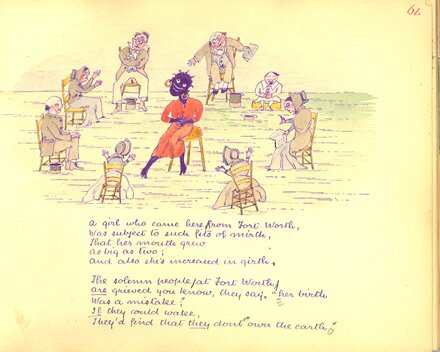 61.
A girl who came here from Fort Worth,
Was subject to such fits of mirth,
That her mouth grew
as big as two;
And also she's increased in girth.
The solemn people at Fort Worth
are grieved you know, they say, "her birth
Was a mistake;"
If they could wake,
They'd find that they dont own the earth!